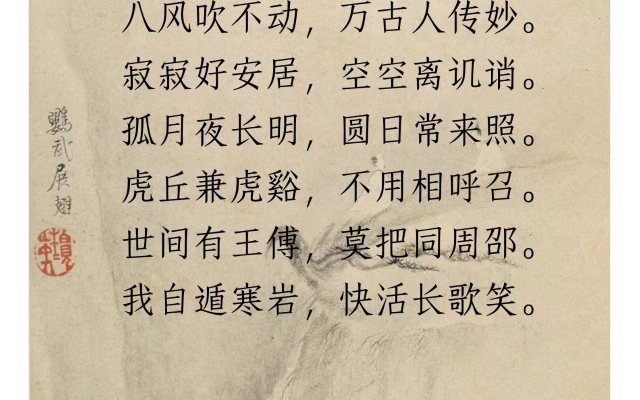 八风吹不动，万古人传妙。
寂寂好安居，空空离讥诮。
孤月夜长明，圆日常来照。
虎丘兼虎谿，不用相呼召。
世间有王傅，莫把同周邵。
我自遁寒岩，快活长歌笑。
鸚武展翅